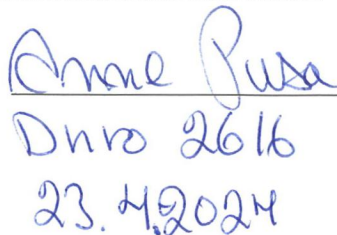 Anne Pusa
Dnro 2616
23.4.2024